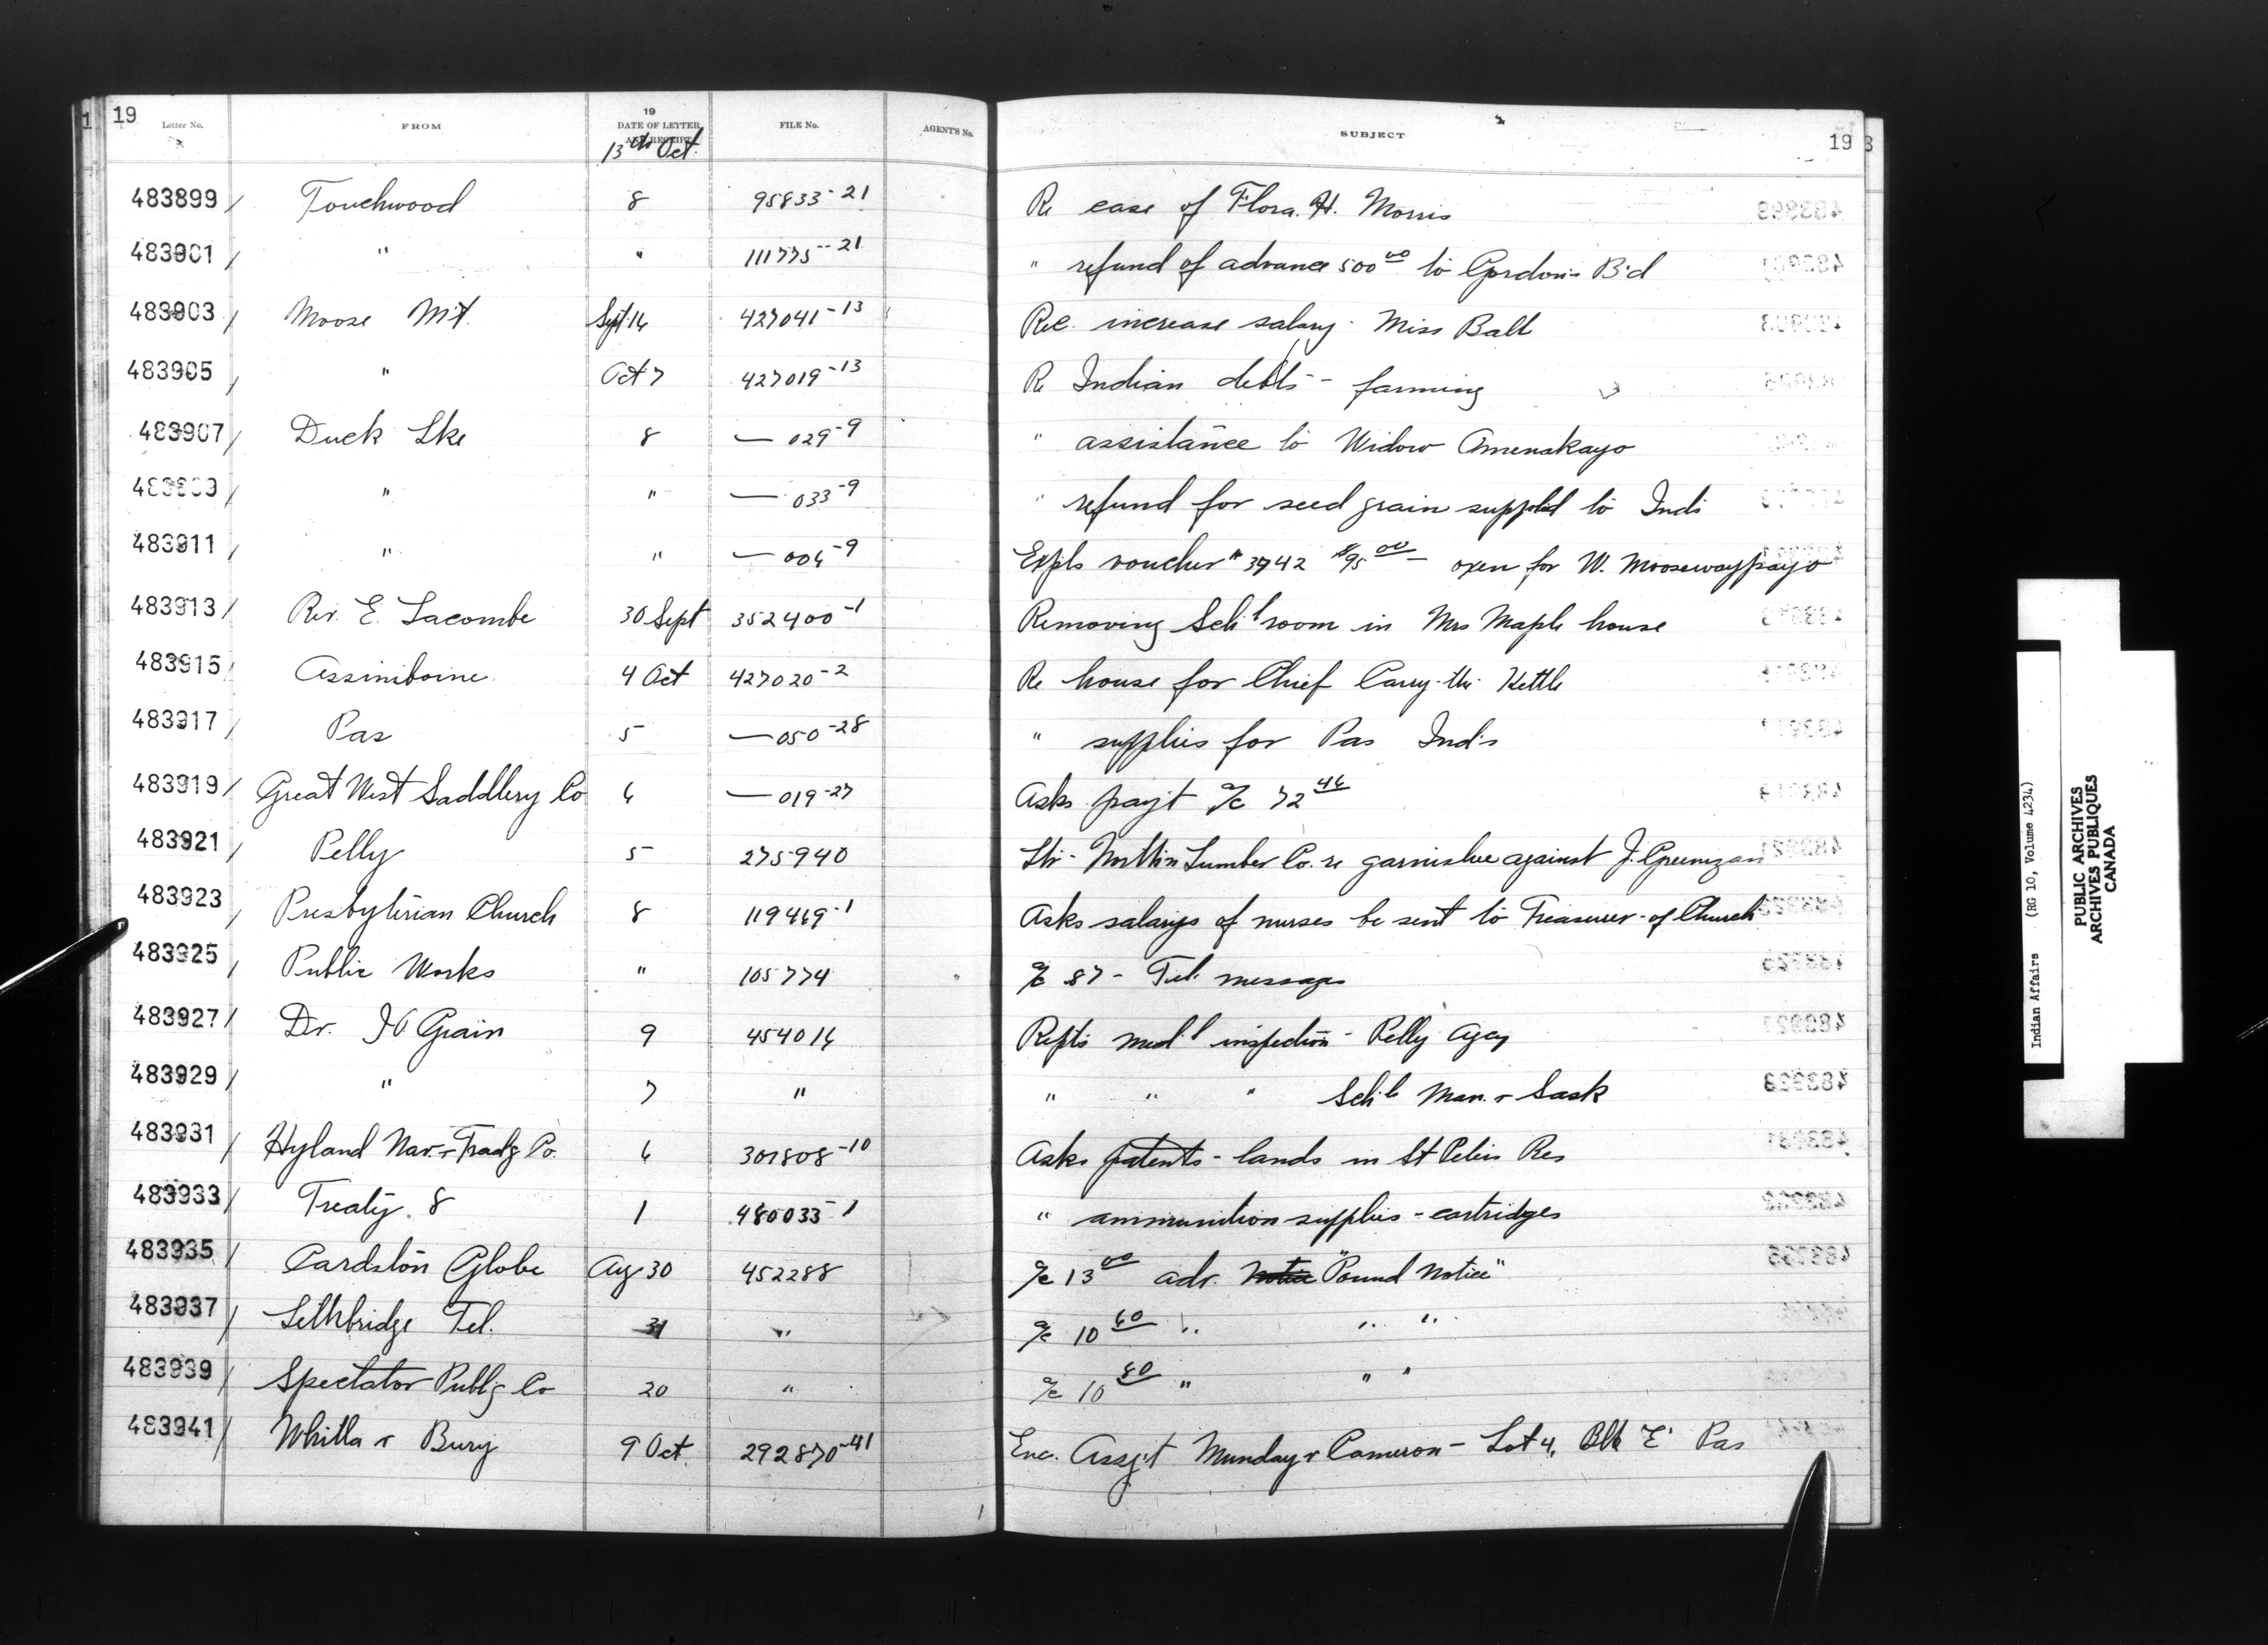 19
Letter No. FROM 19 DATE OF LETTER AND RECEIPT FILE No. AGENT'S No. SUBJECT 19
13th Oct.
483899 / Touchwood 8 95833-21 Re case of Flora. H. Morris
483901 / " " 111775-21 " refund of advance 500 00 to Gordon's B'd
483903 / Moose Mt. Sept 16 427041-13 Rec. increase salary - Miss Ball
483905 / " Oct 7 427019-13 Re Indian debts - farming
483907 / Duck Lke 8 — 029-9 " assistance to Widow Amenakayo
483909 / " " — 033-9 " refund for seed grain supplied to Inds
483911 / " " — 006-9 Expls voucher # 3742 $95 00 — oxen for W. Moosewaypayo
483913 / Rev. E. Lacombe 30 Sept 352400-1 Removing Sch'l room in Mrs Maple house
483915 / Assiniboine 4 Oct 427020-2 Re house for Chief Carry-the-Kettle
483917 / Pas 5 — 050-28 " supplies for Pas Ind's
483919 / Great West Saddlery Co 6 — 019-27 Asks pay't a/c 72 46
483921 / Pelly 5 275940 Ltr - North'n Lumber Co. re garnishee against J.
483923 / Presbyterian Church 8 119469-1 Asks salarys of nurses be sent to Treasurer of Church
483925 / Public Works " 105774 a/c .87 - Tel. messages
483927 / Dr. Grain 9 454016 Repts med'l inspection - Pelly Agcy
483929 / " 7 " " " " Sch'ls Man. & Sask
483931 / Hyland Nav. & Trad'g Co. 6 301808-10 Asks patents - lands in St Peters Res
483933 / Treaty. 8 1 480035-1 " ammunition supplies - cartridges
483935 / Cardston Globe Aug 30 452288 a/c 13 00 adv. Notice "Pound Notice"
483937 / Lethbridge Tel. 31 " a/c 10 60 " " "
483939 / Spectator Publ'g Co 20 " a/c 10 80 " " "
483941 / Whitla & Bury 9 Oct. 292870-41 Enc. Assg't Munday & Cameron - Lot 4, Blk 'E' Pas
Indian Affairs (RG 10, Volume 4234)
PUBLIC ARCHIVES
ARCHIVES PUBLIQUES
CANADA